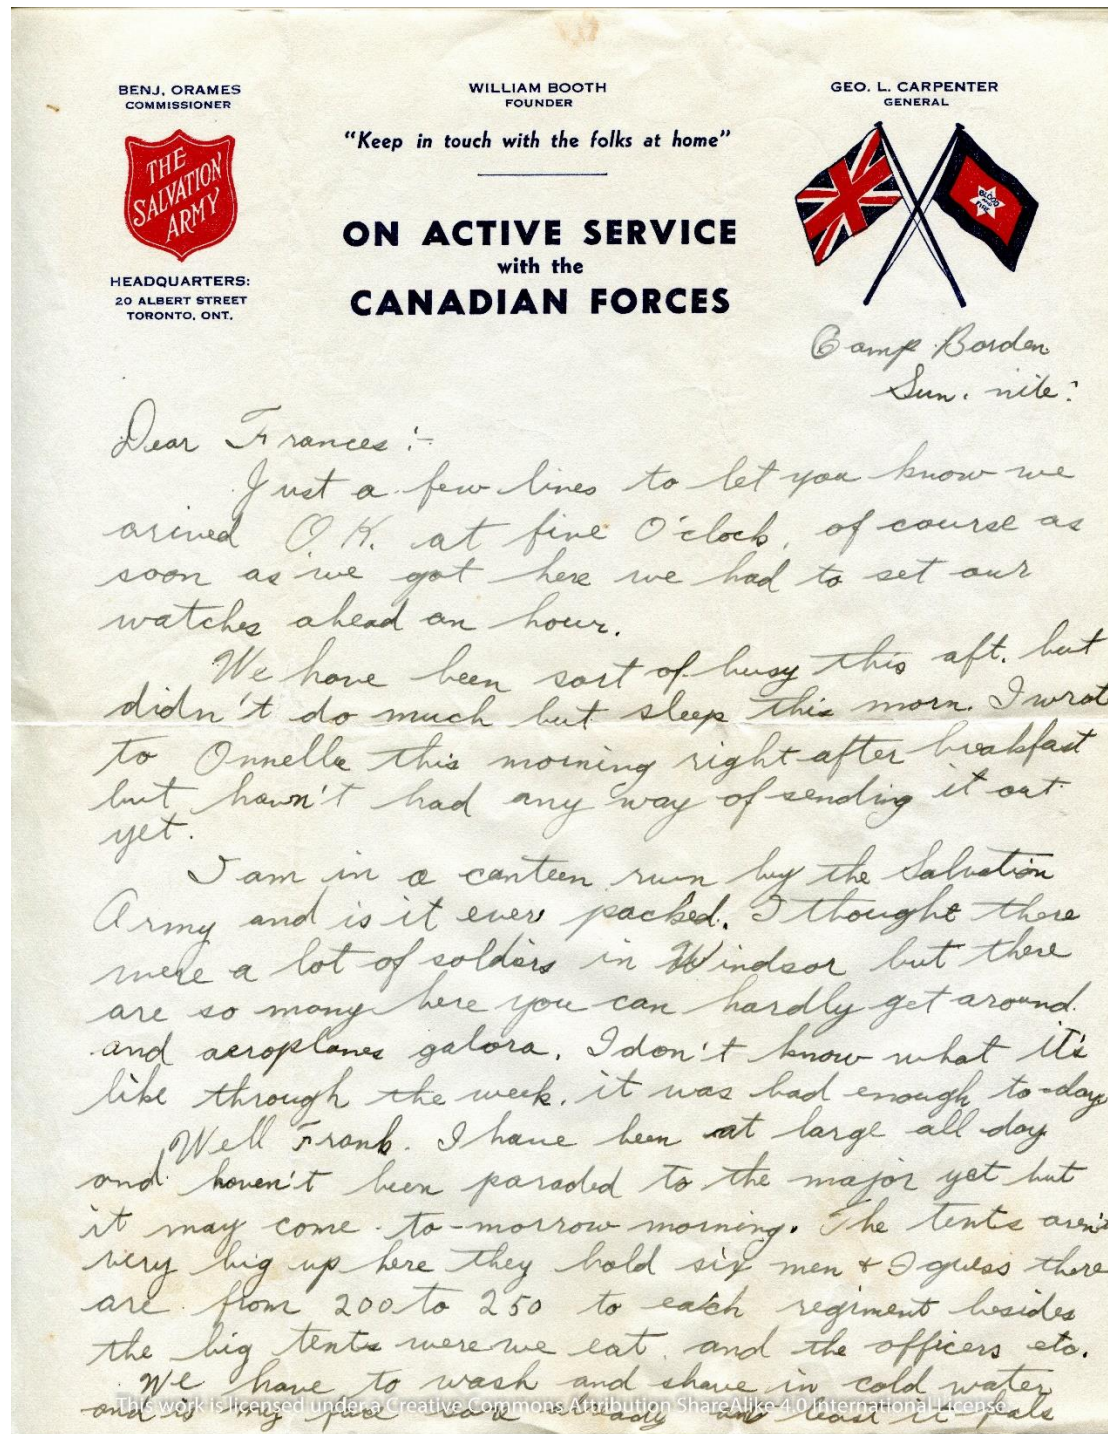 BENJ. ORAMES
COMMISSIONER
THE
SALVATION
ARMY
HEADQUARTERS:
20 ALBERT STREET
TORONTO, ONT.
WILLIAM BOOTH
FOUNDER
"Keep in touch with the folks at home"
ON ACTIVE SERVICE
with the
CANADIAN FORCES
GEO. L. CARPENTER
GENERAL
BLOOD
AND
FIRE
Camp Borden
Sun. nite:
Dear Frances:-
Just a few lines to let you know we
arived O.K. at five O'clock, of course as
soon as we got here we had to set our
watches ahead an hour.
We have been sort of busy this aft. but
didn't do much but sleep this morn. I wrot
to Onnella this morning right after breakfast
but havn't had any way of sending it out
yet.
I am in a canteen run by the Salvation
Army and is it ever packed. I thought there
were a lot of soldiers in Windsor but there
are so many here you can hardly get around
and aeroplanes galora. I don't know what it's
like through the week, it was bad enough to-day
Well Frank. I have been at large all day
and haven't been paraded to the major yet but
it may come to-morrow morning. The tents aren't
very big up here they hold six men & I guess there
are from 200 to 250 to each regiment besides
the big tents were we eat, and the officers etc.
We have to wash and shave in cold water
and is my face already least it feels
This work is licensed under a Creative Commons Attribution ShareAlike 4.0 International License